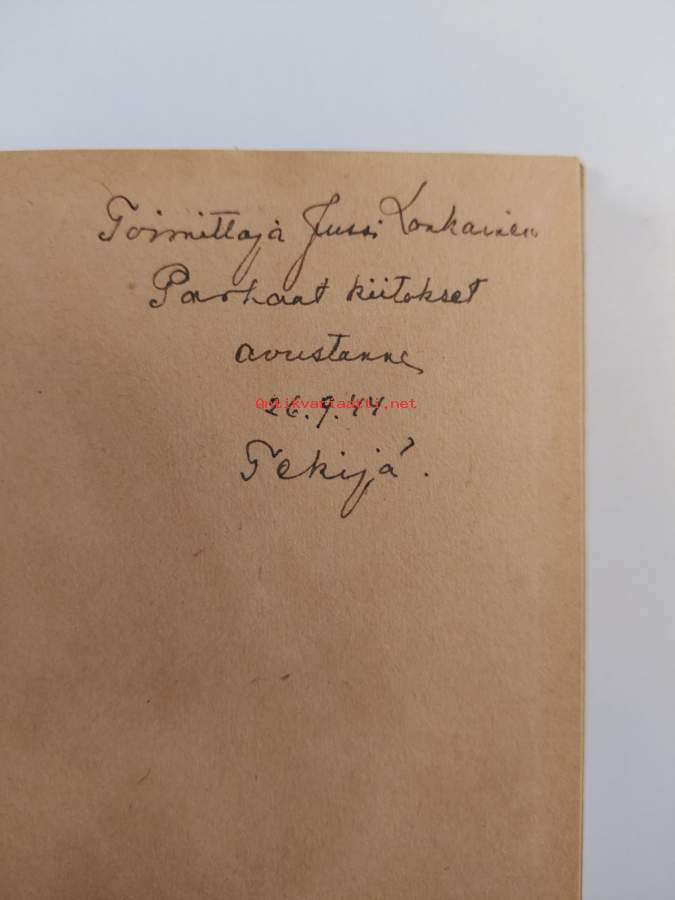 Toimittaja Jussi Lonkainen
Parhaat kiitokset
avustanne
Antikvariaatti.net
26.9.44
Tekijä.